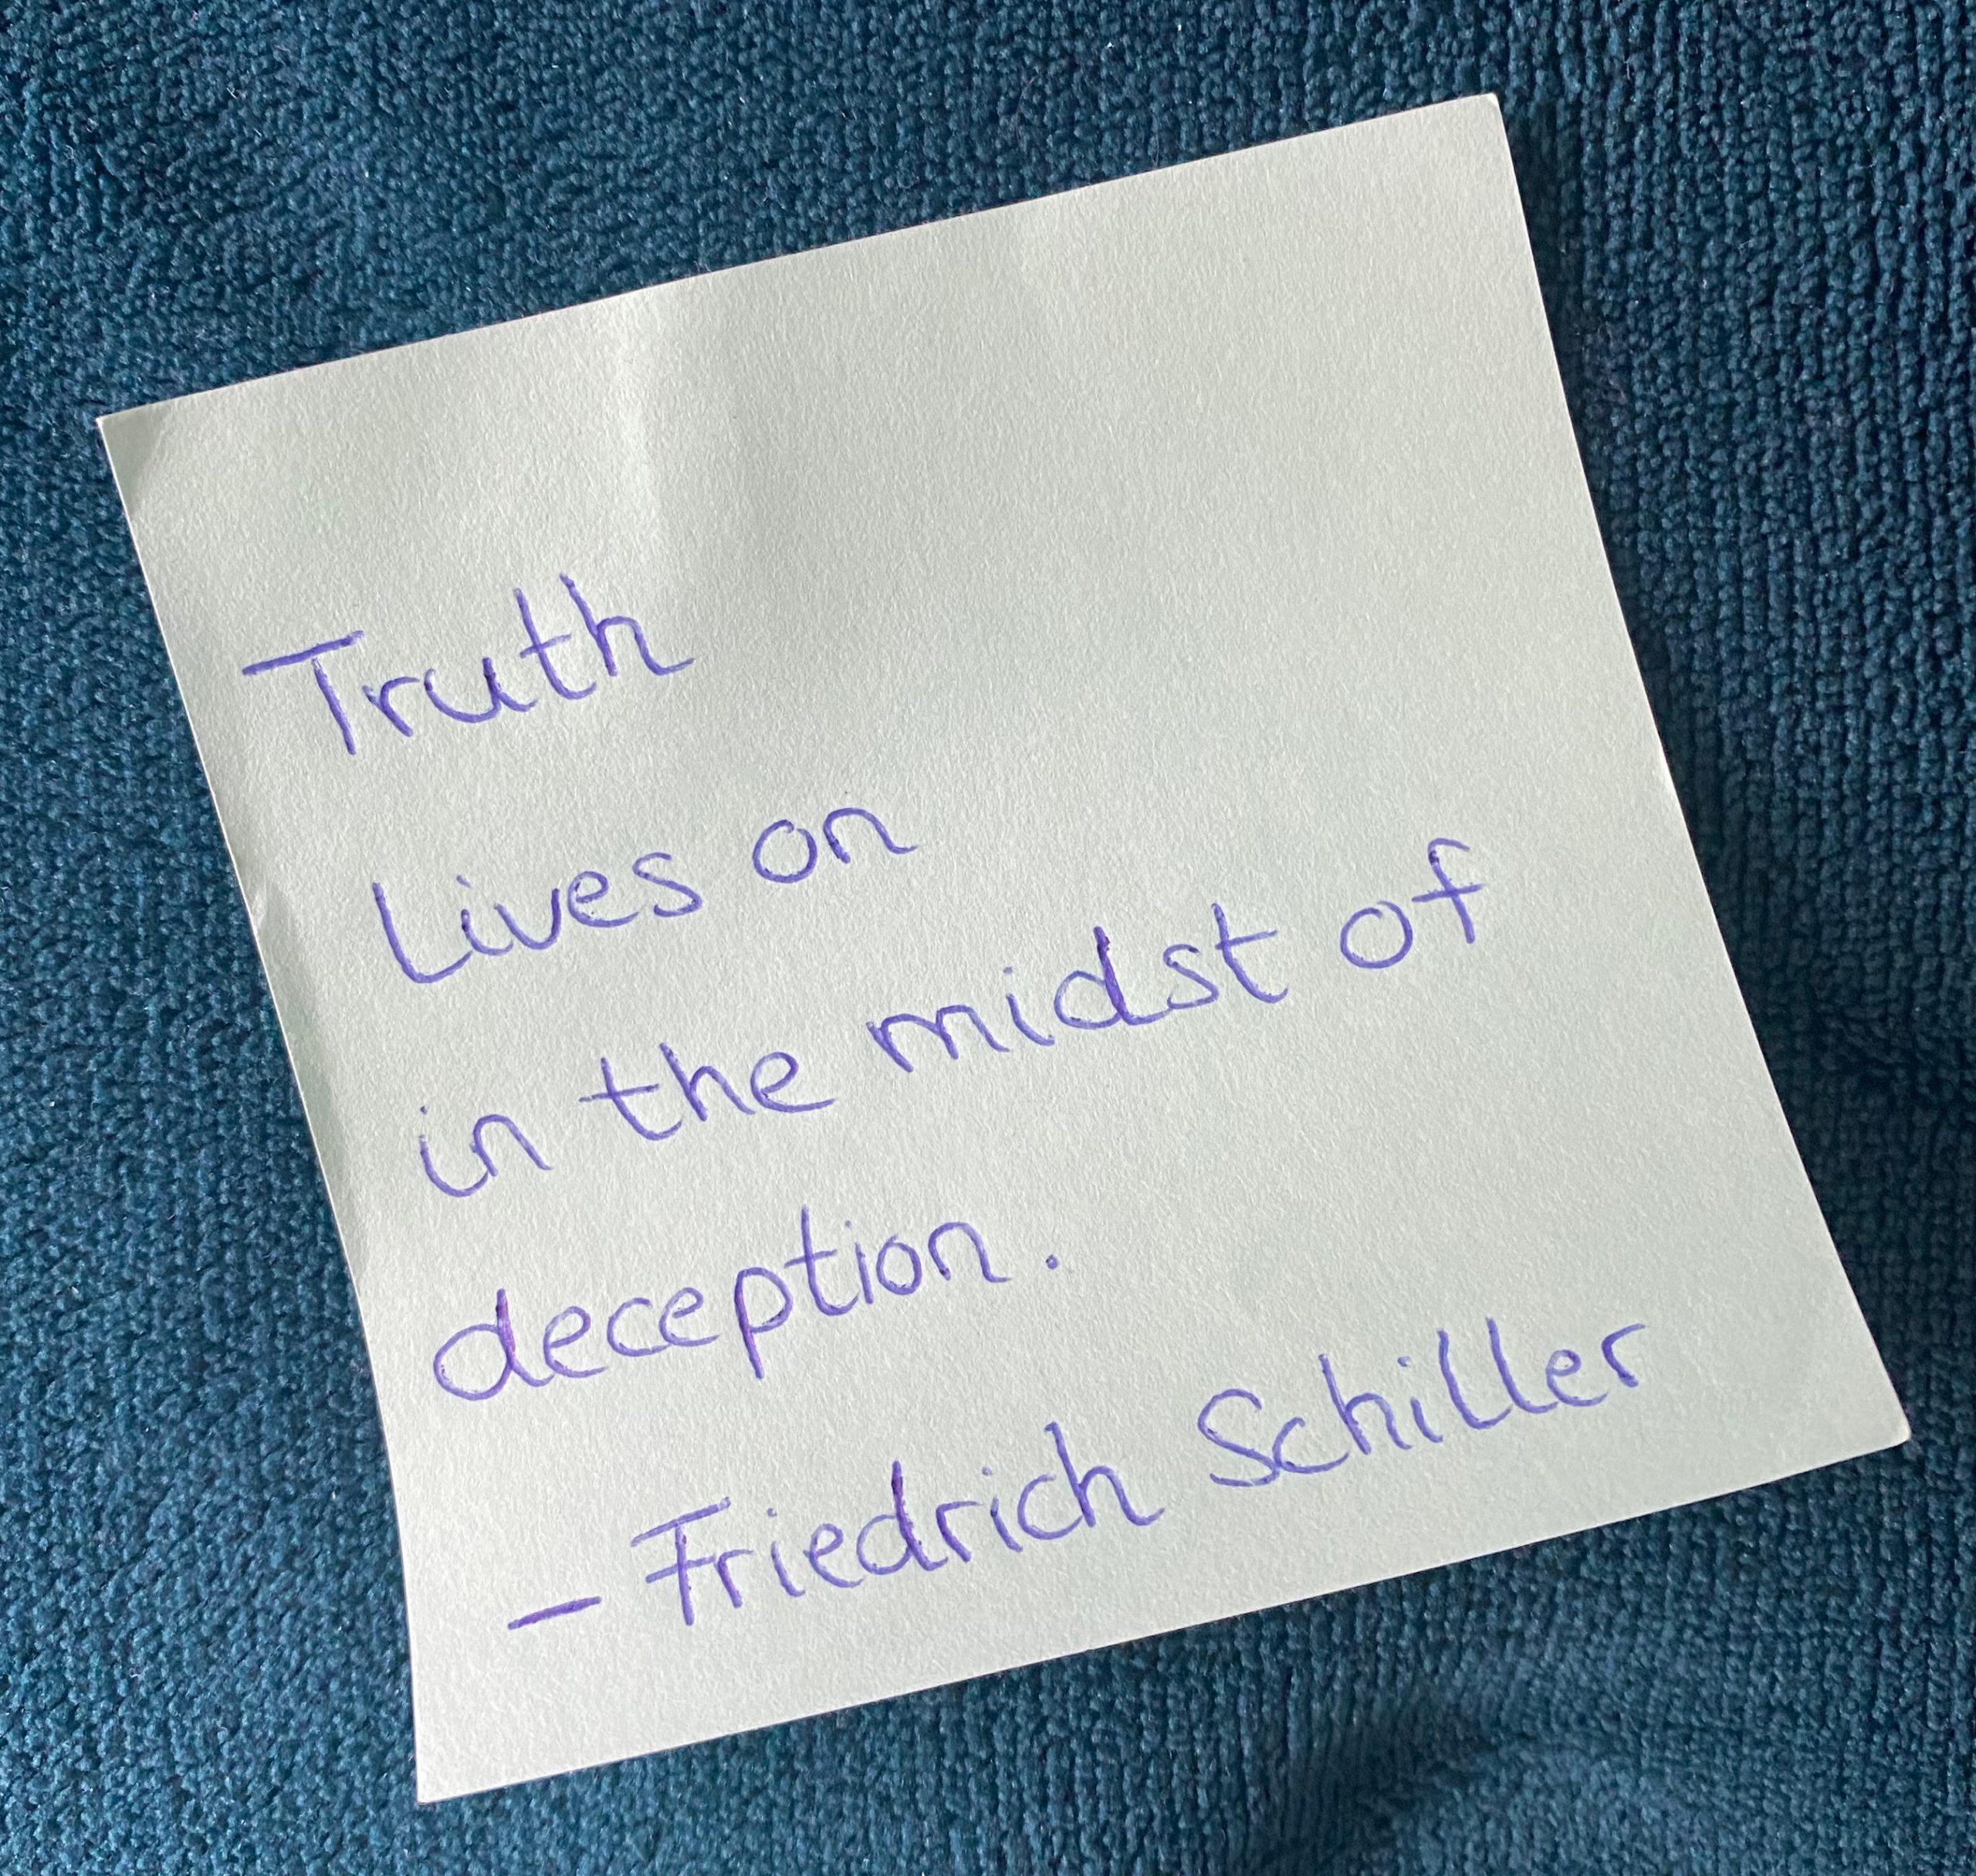 Truth
Lives on
in the midst of
deception.
- Friedrich Schiller